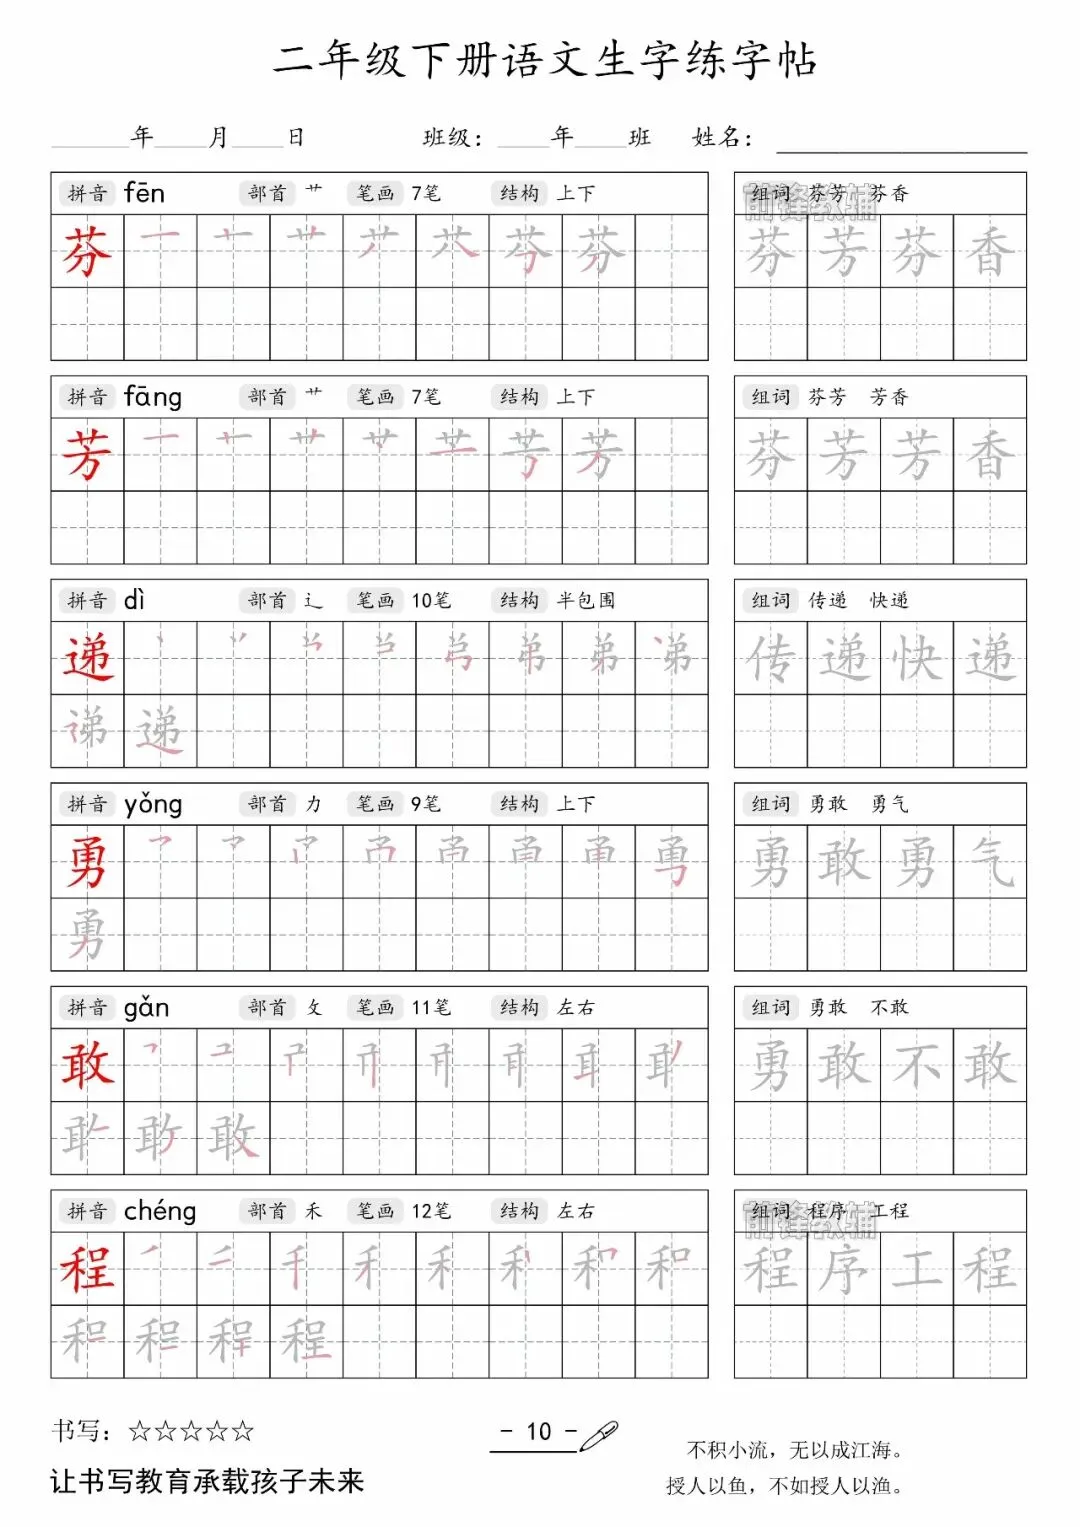 二年级下册语文生字练字帖
年 月 日 班级： 年 班 姓名：
拼音 fēn 部首 艹 笔画 7笔 结构 上下
组词 芬芳 芬香
前锋教辅
芬 一 十 艹 芬 芬
芬 芳 芬 香
拼音 fāng 部首 艹 笔画 7笔 结构 上下
组词 芬芳 芳香
芳 一 十 艹 芳 芳
芬 芳 芳 香
拼音 dì 部首 辶 笔画 10笔 结构 半包围
组词 传递 快递
递 丶 弟
传 递 快 递
递
拼音 yǒng 部首 力 笔画 9笔 结构 上下
组词 勇敢 勇气
勇 甬 勇
勇 敢 勇 气
勇
拼音 gǎn 部首 攵 笔画 11笔 结构 左右
组词 勇敢 不敢
敢
勇 敢 不 敢
敢
拼音 chéng 部首 禾 笔画 12笔 结构 左右
组词 程序 工程
前锋教辅
程 丿 二 千 禾 禾 和
程 序 工 程
程
书写：☆☆☆☆☆
- 10 -
不积小流，无以成江海。
让书写教育承载孩子未来
授人以鱼，不如授人以渔。